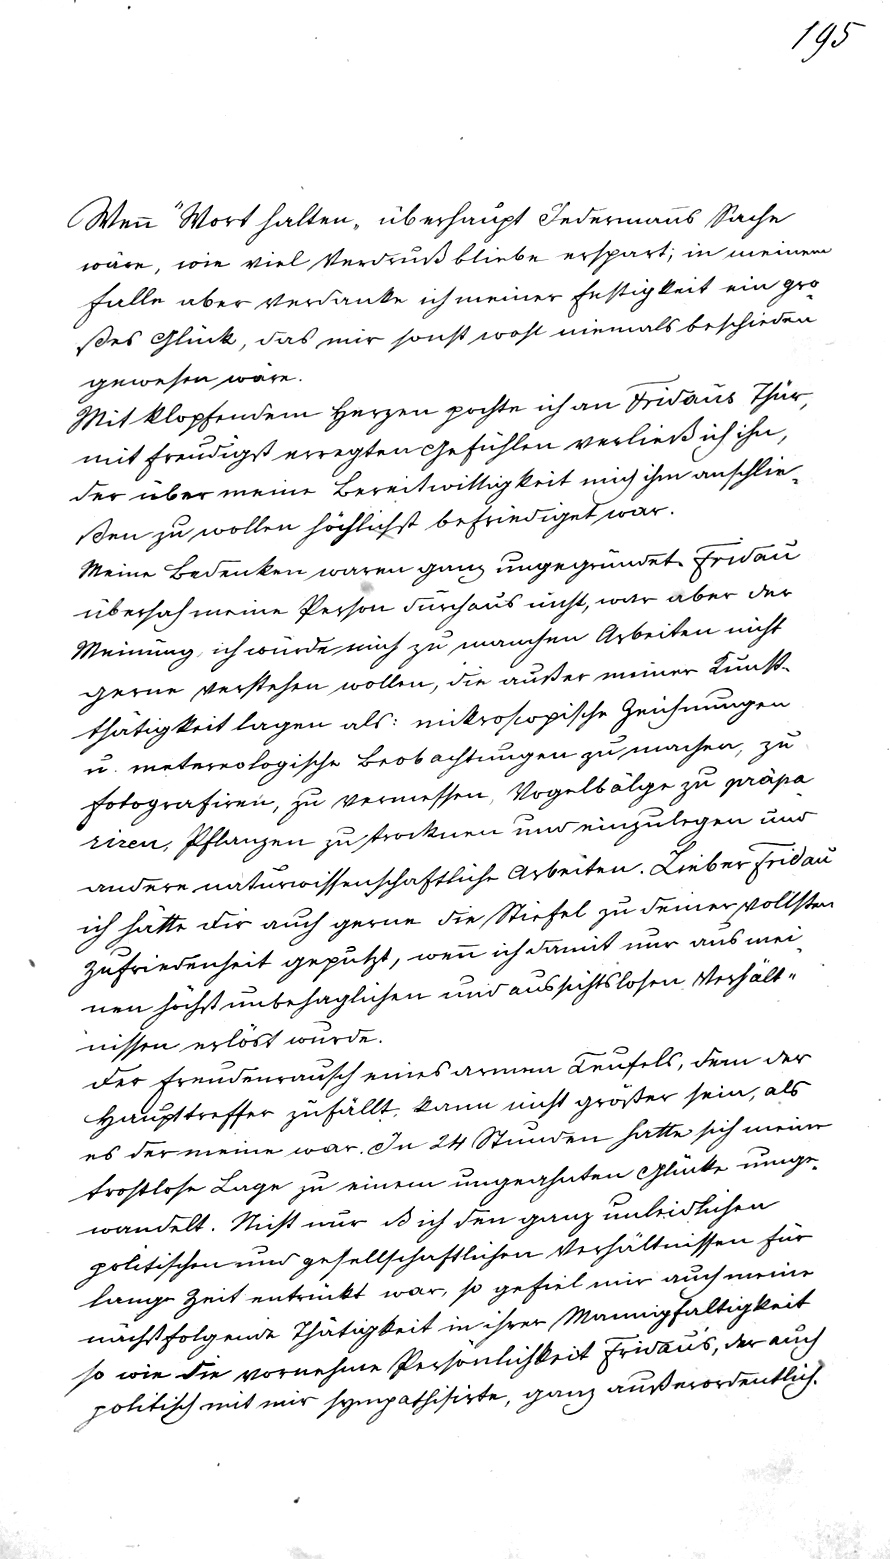 195
Wen̄ "Wort halten„ überhaupt Jedermans Sache
wäre, wie viel Verdruß bliebe erspart; in meinem
Falle aber verdanke ich meiner Festigkeit ein gro-
ßes Glück, das mir sonst wohl niemals beschieden
gewesen wäre.
Mit klopfendem Herzen pochte ich an Fridaus Thür,
mit freudigst erregten Gefühlen verließ ich ihn,
der über meine Bereitwilligkeit mich ihm anschlie-
ßen zu wollen höchlichst befriediget war.
Meine Bedenken waren ganz ungegründet. Fridau
übersah meine Person durchaus nicht, war aber der
Meinung, ich würde mich zu manchen Arbeiten nicht
gerne verstehen wollen, die außer meiner Kunst-
thätigkeit lagen als: mikroscopische Zeichnungen
u. metereologische Beobachtungen zu machen, zu
fotografiren, zu vermessen, Vogelbälge zu präpa-
riren, Pflanzen zu trocknen und einzulegen und
andere naturwissenschaftliche Arbeiten. Lieber Fridau
ich hätte dir auch gerne die Stiefel zu deiner vollsten
Zufriedenheit geputzt, wen̄ ich damit nur aus mei-
nen höchst unbehaglichen und aussichtslosen Verhält-
nissen erlöst wurde.
Der Freudenrausch eines armen Teufels, dem der
Haupttreffer zufällt, kann nicht größer sein, als
es der meine war. In 24 Stunden hatte sich meine
trostlose Lage zu einem ungeahnten Glücke umge-
wandelt. Nicht nur ß ich den ganz unleidlichen
politischen und gesellschaftlichen Verhältnissen für
lange Zeit entrückt war, so gefiel mir auch meine
nächstfolgende Thätigkeit in ihrer Mannigfaltigkeit
so wie die vornehme Persönlichkeit Fridau's, der auch
politisch mit mir sympathisirte, ganz außerordentlich.